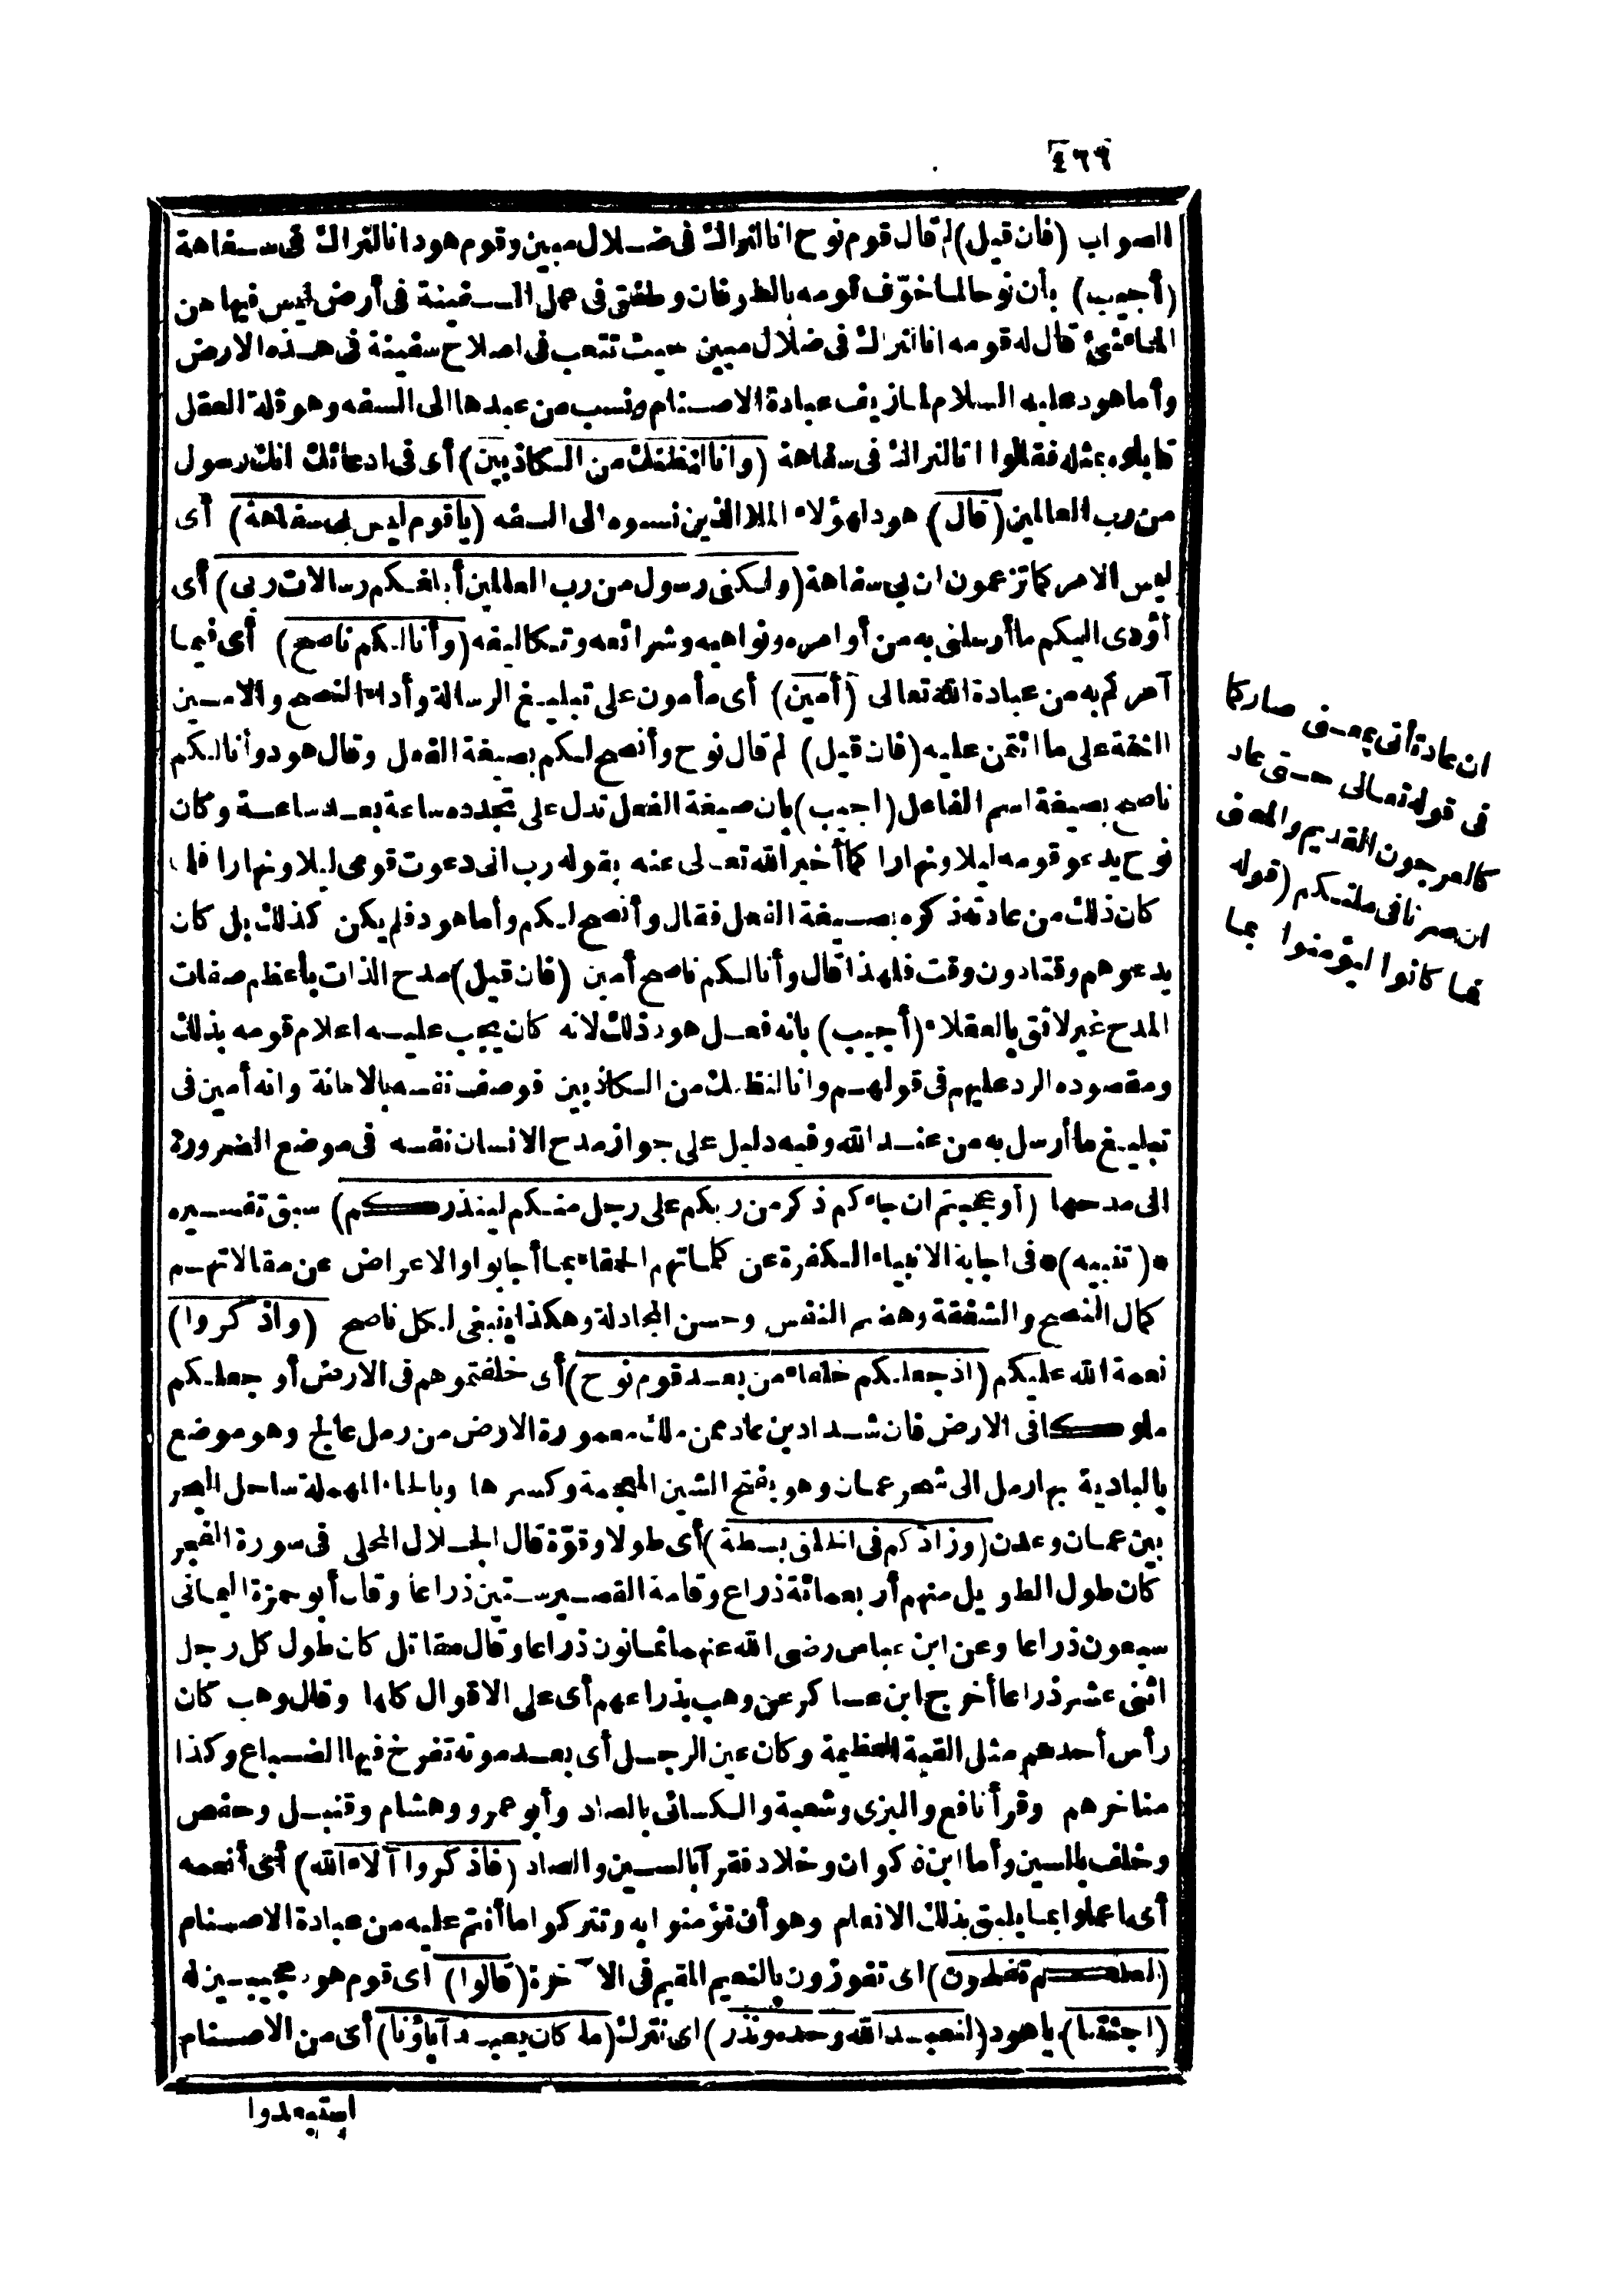 ٤٦٦
الصواب (فان قيل) لم قال قوم نوح انا لنراك فى ضلال مبين وقوم هود انا لنراك فى سفاهة
(أجيب) بأن نوحا لما خوّف قومه بالطوفان وطفق فى عمل السفينة فى أرض ليس فيها من
الماء شئ قال له قومه انا لنراك فى ضلال مبين حيث تتعب فى اصلاح سفينة فى هذه الارض
وأما هود عليه السلام لما زيف عبادة الاصنام ونسب من عبدها الى السفه وهو قلة العقل
قابلوه بمثله فقالوا انا لنراك فى سفاهة (وانا لنظنك من الكاذبين) أى فى ادعائك انك رسول
من رب العالمين (قال) هود لهؤلاء الملا الذين نسبوه الى السفه (يا قوم ليس بى سفاهة) أى
ليس الامر كما تزعمون ان بى سفاهة (ولكنى رسول من رب العالمين أبلغكم رسالات ربى) أى
أؤدى اليكم ما أرسلنى به من أوامره ونواهيه وشرائعه وتكاليفه (وأنا لكم ناصح) أى فيما
آمركم به من عبادة الله تعالى (أمين) أى مأمون على تبليغ الرسالة وأداء النصح والامين
الثقة على ما ائتمن عليه (فان قيل) لم قال نوح وأنصح لكم بصيغة الفعل وقال هود وأنا لكم
ناصح بصيغة اسم الفاعل (اجيب) بان صيغة الفعل تدل على تجدده ساعة بعد ساعة وكان
نوح يدعو قومه ليلا ونهارا كما أخبر الله تعالى عنه بقوله رب انى دعوت قومى ليلا ونهارا فلما
كان ذلك من عادته ذكره بصيغة الفعل فقال وأنصح لكم وأما هود فلم يكن كذلك بل كان
يدعوهم وقتا دون وقت فلهذا قال وأنا لكم ناصح أمين (فان قيل) مدح الذات بأعظم صفات
المدح غير لائق بالعقلاء (أجيب) بانه فعل هود ذلك لانه كان يجب عليه اعلام قومه بذلك
ومقصوده الرد عليهم فى قولهم وانا لنظنك من الكاذبين فوصف نفسه بالامانة وانه أمين فى
تبليغ ما أرسل به من عند الله وفيه دليل على جواز مدح الانسان نفسه فى موضع الضرورة
الى مدحها (أوعجبتم ان جاءكم ذكر من ربكم على رجل منكم لينذركم) سبق تفسيره
*(تنبيه)* فى اجابة الانبياء الكفرة عن كلماتهم الحمقاء بما أجابوا والاعراض عن مقالاتهم
كمال النصح والشفقة وهضم النفس وحسن المجادلة وهكذا ينبغى لكل ناصح (واذكروا)
نعمة الله عليكم (اذ جعلكم خلفاء من بعد قوم نوح) أى خلفتموهم فى الارض أو جعلكم
ملوكا فى الارض فان شداد بن عاد ممن ملك معمورة الارض من رمل عالج وهو موضع
بالبادية بها رمل الى شحر عمان وهو بفتح الشين المعجمة وكسرها وبالحاء المهملة ساحل البحر
بين عمان وعدن (وزادكم فى الخلق بسطة) أى طولا وقوّة قال الجلال المحلى فى سورة الفجر
كان طول الطويل منهم أربعمائة ذراع وقامة القصير ستين ذراعا وقال أبو حمزة اليمانى
سبعون ذراعا وعن ابن عباس رضى الله عنهما ثمانون ذراعا وقال مقاتل كان طول كل رجل
اثنى عشر ذراعا أخرج ابن عساكر عن وهب بذراعهم أى على الاقوال كلها وقال وهب كان
رأس أحدهم مثل القبة العظيمة وكان عين الرجل أى بعد موته تفرخ فيها الضباع وكذا
مناخرهم وقرأ نافع والبزى وشعبة والكسائى بالصاد وأبو عمرو وهشام وقنبل وحفص
وخلف بالسين وأما ابن ذكوان وخلاد فقرآ بالسين والصاد (فاذكروا آلاء الله) أى أنعمه
أى اعملوا بما يليق بذلك الانعام وهو أن تؤمنوا به وتتركوا ما أنتم عليه من عبادة الاصنام
(لعلكم تفلحون) اى تفوزون بالنعيم المقيم فى الآخرة (قالوا) اى قوم هود مجيبين له
(اجئتنا) يا هود (لنعبد الله وحده ونذر) اى نترك (ما كان يعبد آباؤنا) أى من الاصنام
استبعدوا
ان عادة أتى بمعنى صار كما
فى قوله تعالى حتى عاد
كالعرجون القديم والمعنى
ان صرنا فى ملتكم (قوله
فما كانوا ليؤمنوا بما